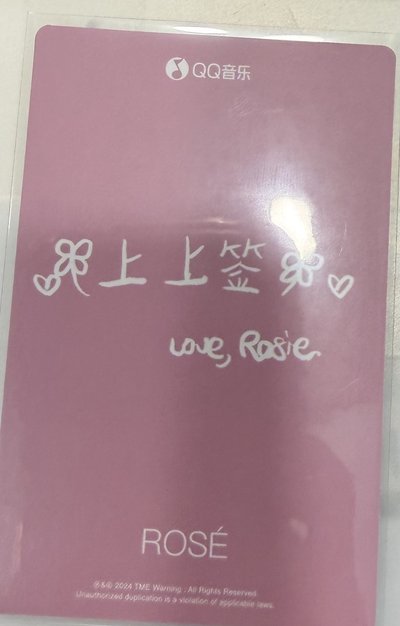 QQ音乐
上上签
Love, Rosie.
ROSÉ
℗&© 2024 TME Warning : All Rights Reserved.
Unauthorized duplication is a violation of applicable laws.